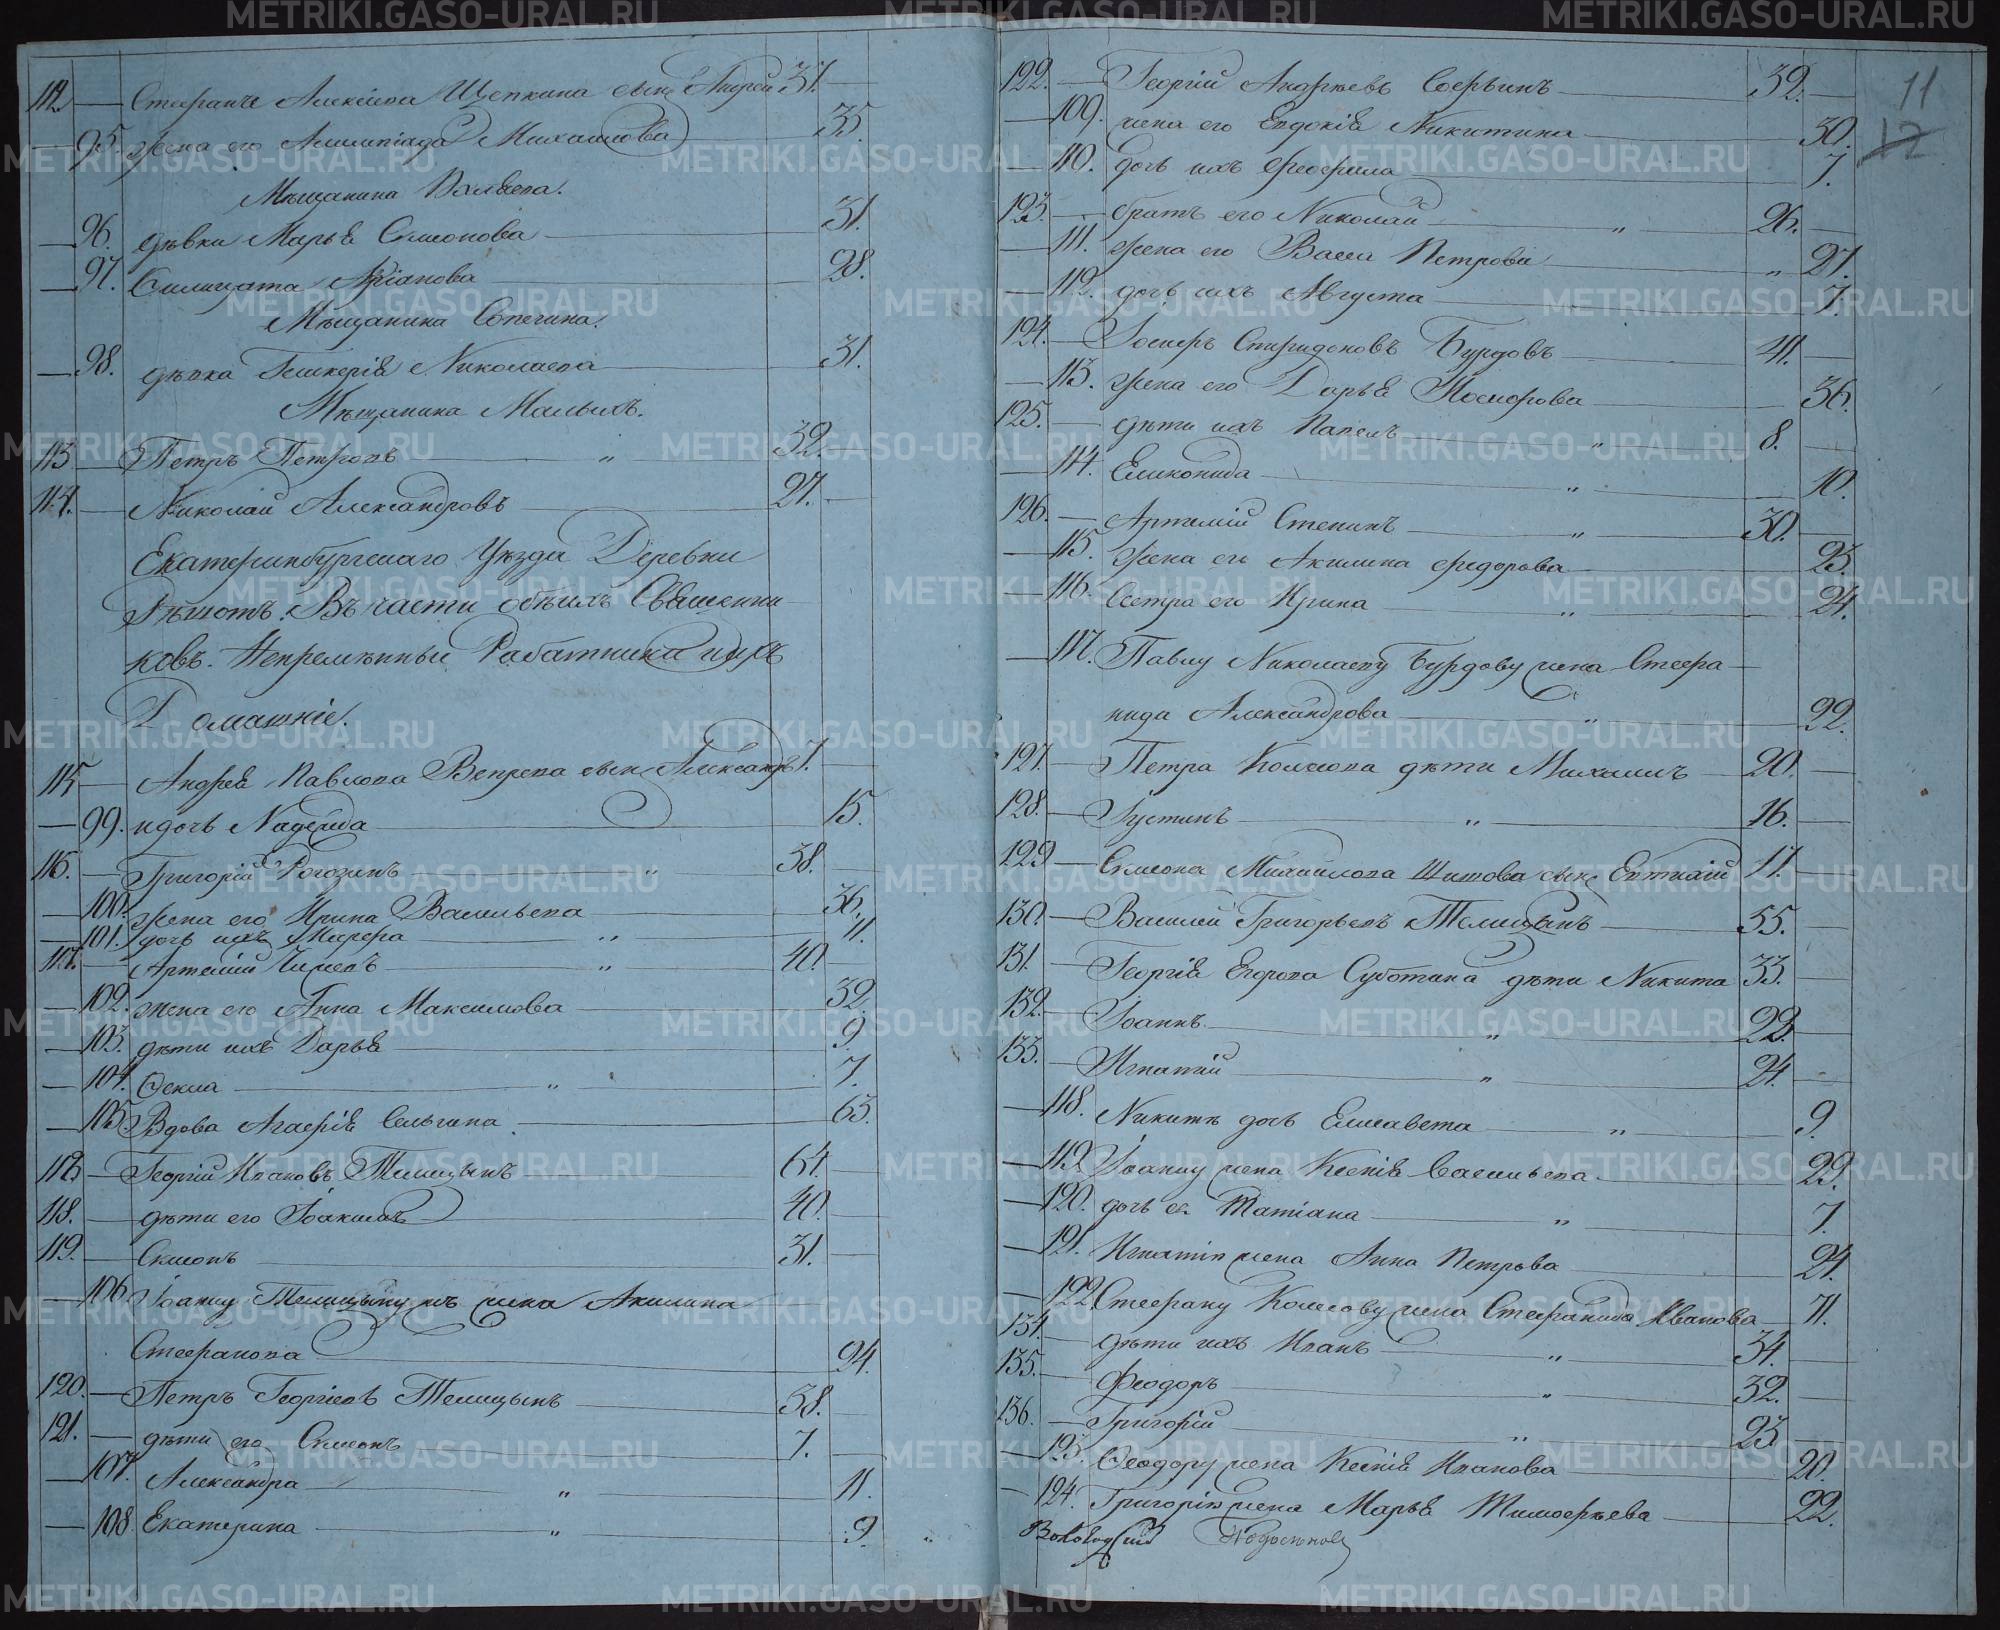 112. — Стефана Алексѣева Щепкина сынъ Андрей 37. —
— 95. жена его Алимпіада Михайлова 35.
Мѣщанина
— 96. дѣвки Марья Симонова 31.
— 97. 28.
Мѣщанина
— 98. дѣвка Гликерія Николаева 31.
Мѣщанина Малыхъ.
113 — Петръ Петровъ „ 32. —
114. — Николай Александровъ 27. —
Екатеринбургскаго Уѣзда Деревни
Рѣшотъ. Въ части обѣихъ Священни
ковъ. Непремѣнные Работники и ихъ
Домашніе.
115 — Андрея Павлова Вепрева сынъ Александръ 7. —
— 99. и дочь Надежда 15.
116. — Григорій Рогозинъ „ 38. —
— 100. жена его Ирина Васильева 36.
— 101. дочь ихъ Марфа „ 11.
117. — Артемій „ 40. —
— 102. жена его Анна Максимова 32.
— 103. дѣти ихъ Дарья 9.
— 104. Фекла „ 7.
— 105. Вдова Агафія 63.
— Георгій Ивановъ Телицынъ 64. —
118. — дѣти его Іоакимъ 40. —
119. — Симонъ 31. —
— 106. Іоакиму Телицыну жена Акилина
Стефанова 24.
120. — Петръ Георгіевъ Телицынъ 38. —
121. — дѣти его Симонъ 7. —
— 107. Александра „ 11.
— 108. Екатерина „ 9.
122. — Георгій Андреевъ 32. — 11
— 109. жена его Евдокія Никитина 30. 12
— 110. дочь ихъ Феофила 7.
123. — братъ его Николай „ 26. —
— 111. жена его Васса Петрова „ 27.
— 112. дочь ихъ Августа 7.
124. — Іосифъ Спиридоновъ Бурдовъ 41. —
— 113. жена его Дарья 36.
125. — дѣти ихъ Павелъ „ 8. —
— 114. Еликонида „ 10.
126. — Артемій Стенинъ „ 30. —
— 115. жена его Акилина Федорова 23.
— 116. Сестра его Ирина „ 24.
— 117. Павлу Николаеву Бурдову жена Стефа
нида Александрова „ 22.
127. — Петра Колясова дѣти Михаилъ 20. —
128. — Іустинъ „ 16. —
129 — Симона Михайлова Шитова сынъ Евтихій 17. —
130. — Василій Григорьевъ Телицынъ 55. —
131. — Георгія Егорова Суботина дѣти Никита 33. —
132. — Іоаннъ „ 29. —
133. — Игнатій „ 24. —
— 118. Никитѣ дочь Елисавета „ 9.
— 119. Іоанну жена Ксенія Васильева 29.
— 120. дочь ея Татіана „ 7.
— 121. Игнатію жена Анна Петрова 24.
— 122. Стефану Колясову жена Стефанида Иванова 71.
134. — дѣти ихъ Иванъ „ 34. —
135. — Феодоръ „ 32. —
136. — Григорій „ 23. —
— 123. Феодору жена Ксенія Иванова 20.
— 124. Григорію жена Марья Тимофѣева 22.